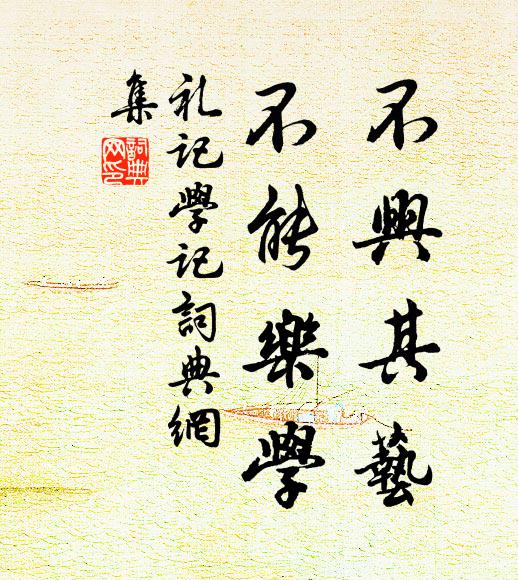 不興其藝
不能樂學
礼记學记詞典網
集
詞典网印